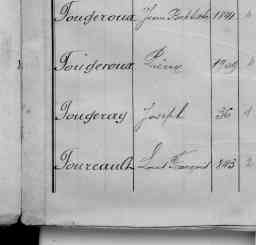 Fougeroux Jean Baptiste 1891
Fougeroux Pierre
Fougeray Joseph 36
Fourcault Louis François 1893